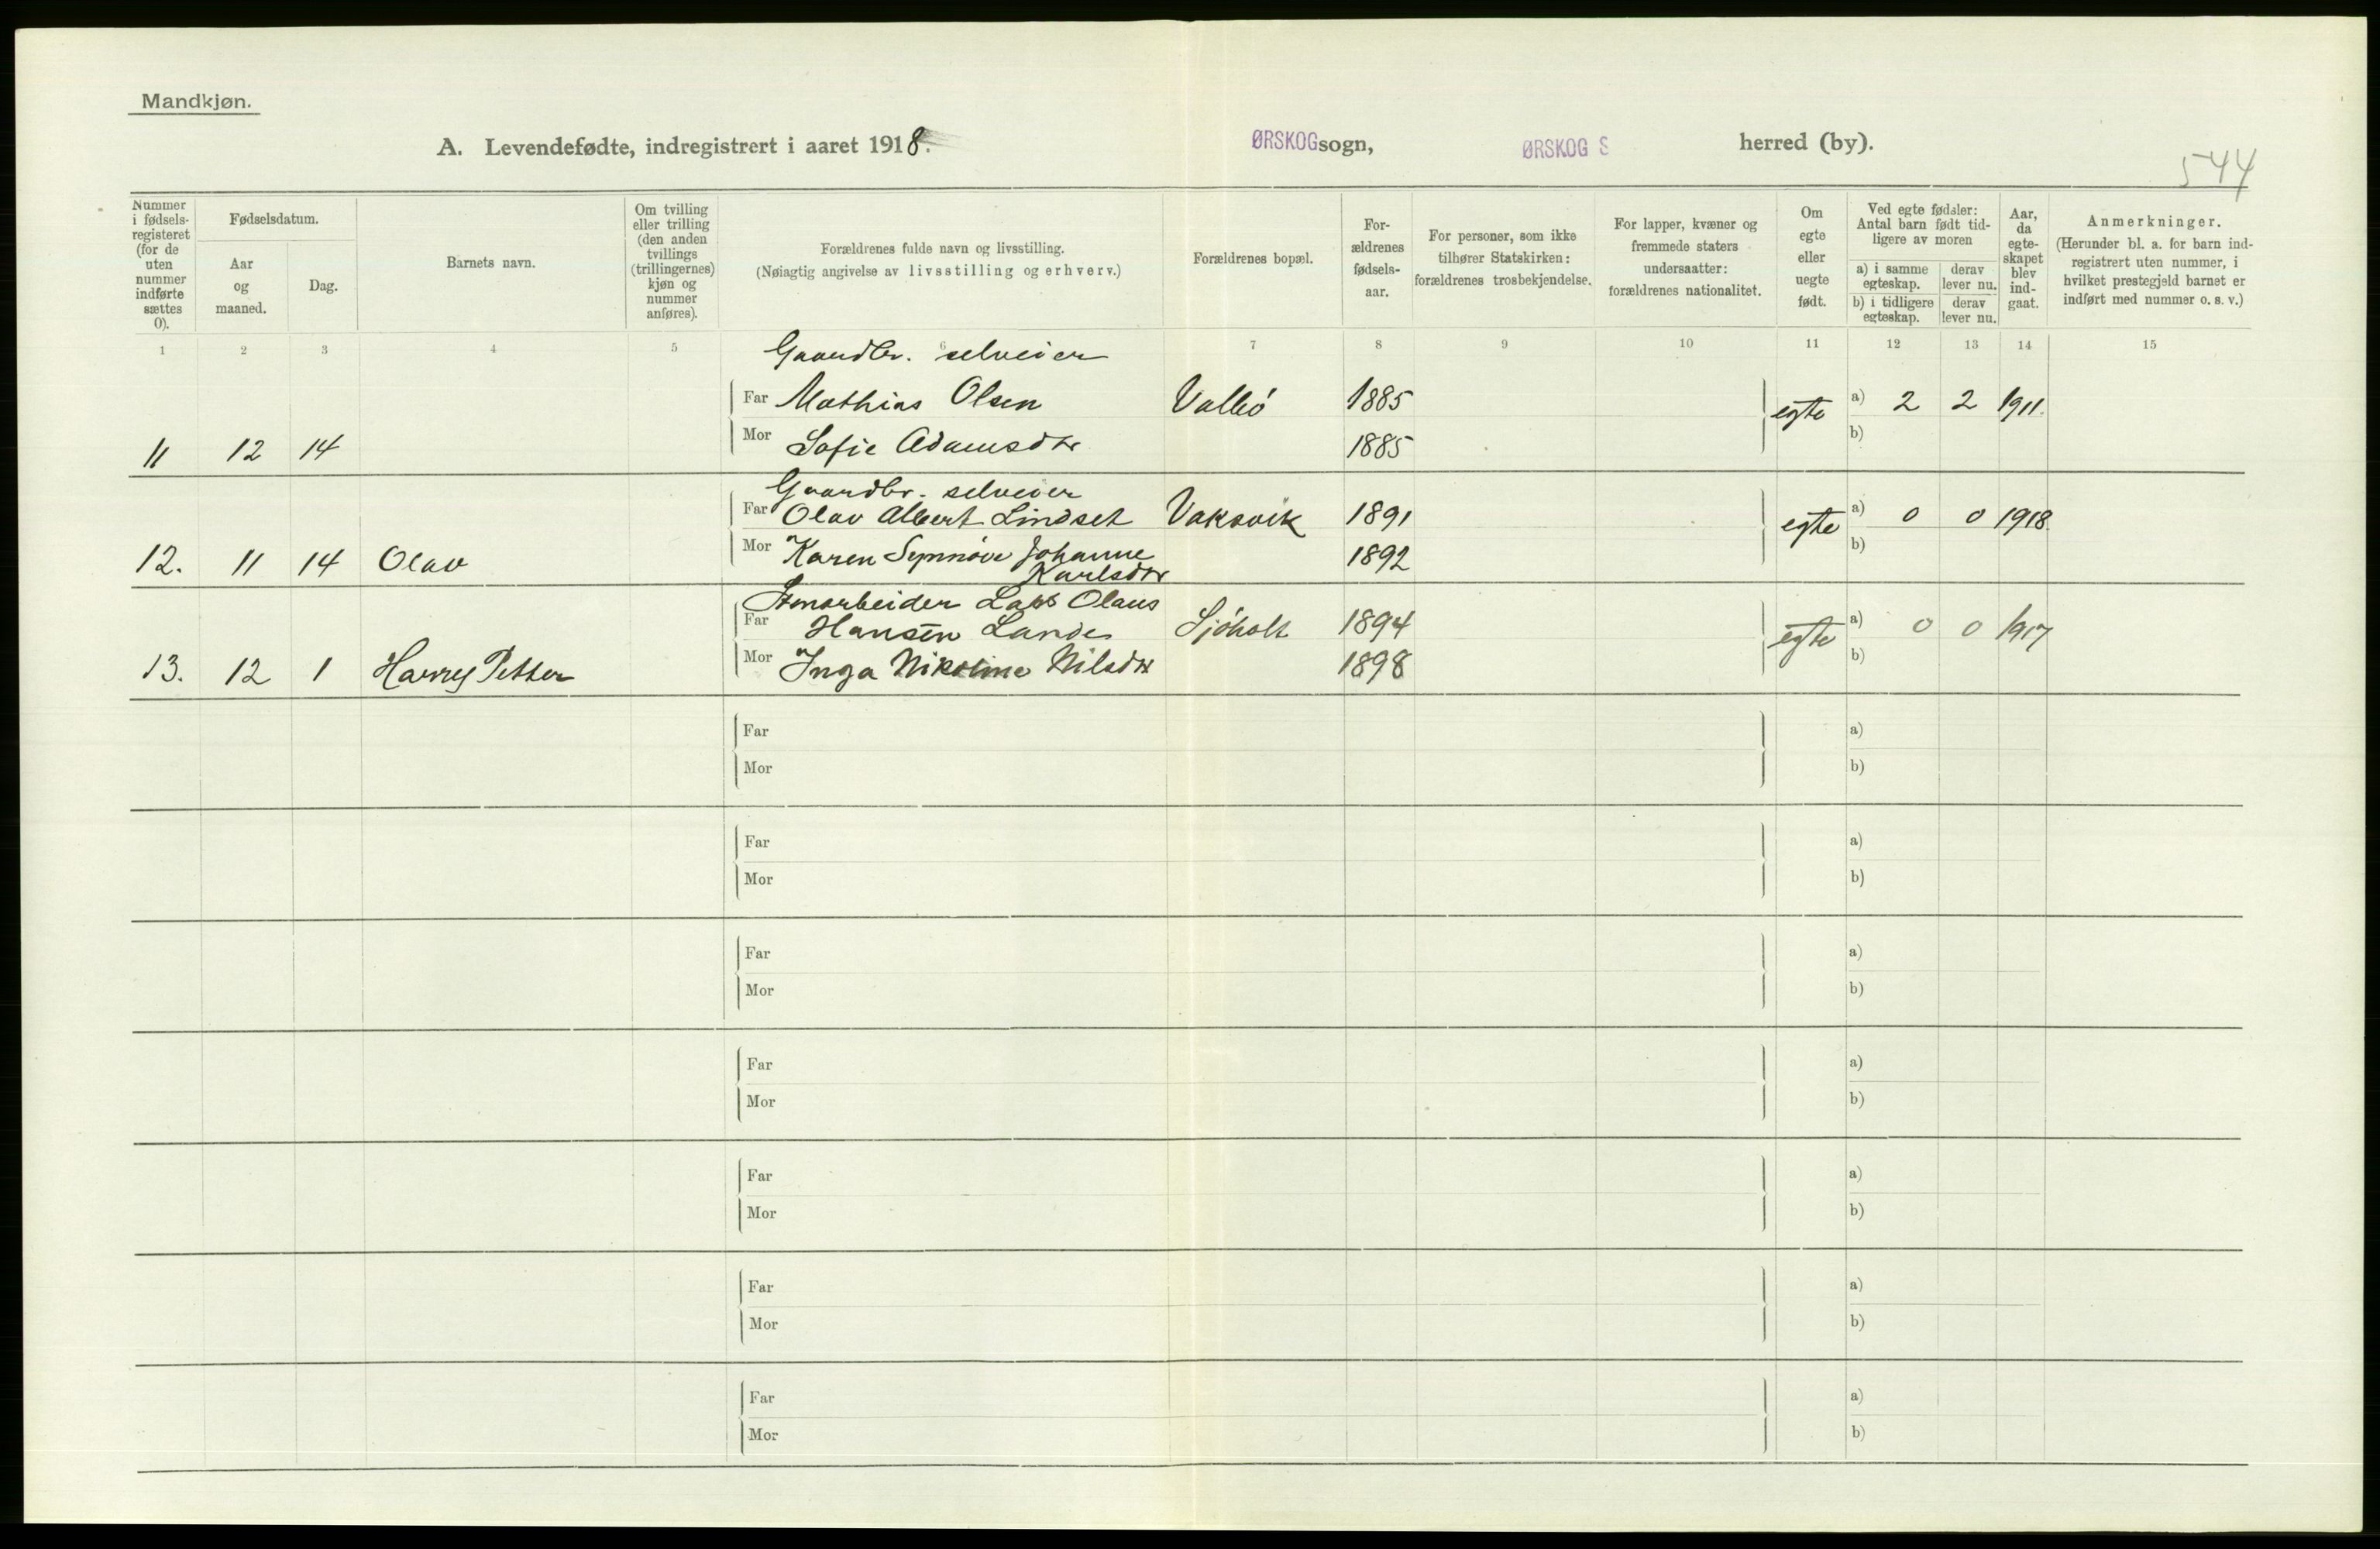 Mandkjøn.
A. Levendefødte, indregistrert i aaret 1918.
ØRSKOG sogn,
ØRSKOG S herred (by).
544
Nummer i fødsels-registeret (for de uten nummer indførte sættes 0).
Fødselsdatum.
Aar og maaned.
Dag.
Barnets navn.
Om tvilling eller trilling (den anden tvillings (trillingernes) kjøn og nummer anføres).
Forældrenes fulde navn og livsstilling.
(Nøiagtig angivelse av livsstilling og erhverv.)
Forældrenes bopæl.
For-ældrenes fødsels-aar.
For personer, som ikke tilhører Statskirken: forældrenes trosbekjendelse.
For lapper, kvæner og fremmede staters undersaatter: forældrenes nationalitet.
Om egte eller uegte født.
Ved egte fødsler: Antal barn født tid-ligere av moren
a) i samme egteskap.
derav lever nu.
b) i tidligere egteskap.
derav lever nu.
Aar, da egte-skapet blev ind-gaat.
Anmerkninger.
(Herunder bl. a. for barn ind-registrert uten nummer, i hvilket prestegjeld barnet er indført med nummer o. s. v.)
1 2 3 4 5 6 7 8 9 10 11 12 13 14 15
Gaardbr. selveier
Far Mathias Olsen Vallø 1885 egte a) 2 2 1911.
11 12 14 Mor Sofie Adamsdtr 1885 b)
Gaardbr. selveier
Far Olav Albert Lindset Vaksvik 1891 egte a) 0 0 1918.
12. 11 14 Olav Mor Karen Synnøve Johanne 1892 b)
Karlsdtr
Olaus
Far Hansen Lande Sjøholt 1894 egte a) 0 0 1917
13. 12 1 Harry Petter Mor Inga Nikoline Nilsdtr 1898 b)
Far a)
Mor b)
Far a)
Mor b)
Far a)
Mor b)
Far a)
Mor b)
Far a)
Mor b)
Far a)
Mor b)
Far a)
Mor b)